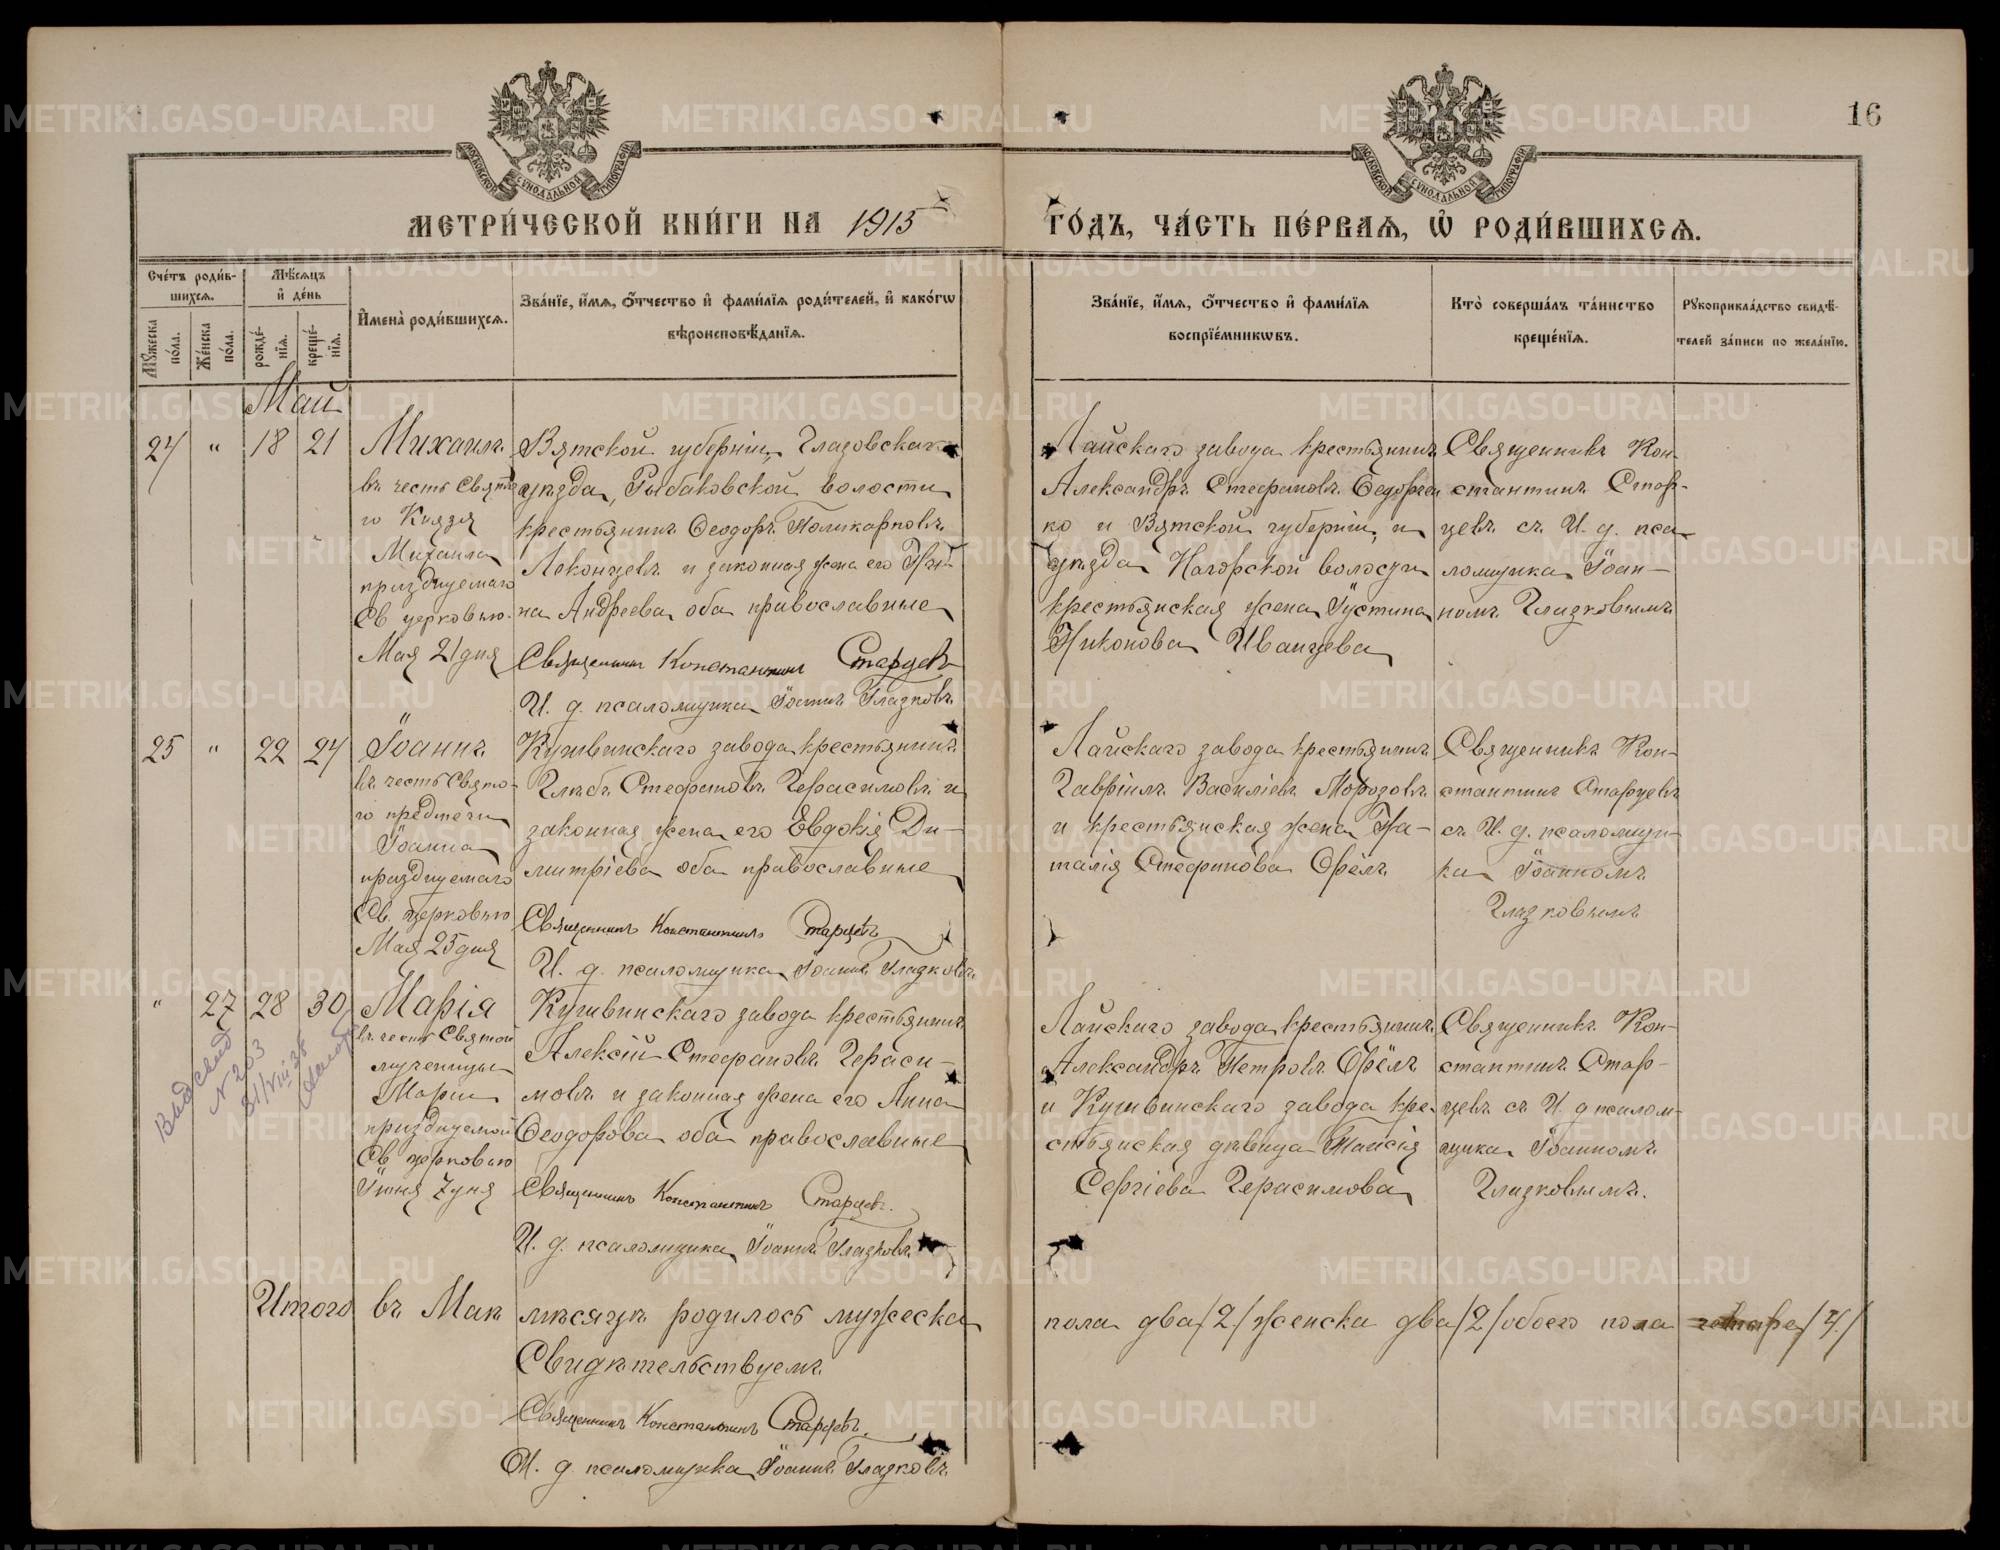 16
МОСКОВСКОЙ СѴНОДАЛЬНОЙ ТИПОГРАФІИ
МОСКОВСКОЙ СѴНОДАЛЬНОЙ ТИПОГРАФІИ
МЕТРИ́ЧЕСКОЙ КНИ́ГИ НА 1915
ГО́ДЪ, ЧА́СТЬ ПЕ́РВАѦ, Ѽ РОДИ́ВШИХСѦ.
Сче́тъ роди́в-
шихсѧ.
Мѣ́сѧцъ
и҆ де́нь
Мꙋ́жеска по́ла.
Же́нска по́ла.
рожде́-
нїѧ.
креще́-
нїѧ.
И҆мена̀ роди́вшихсѧ.
Зва́нїе, и҆́мѧ, ѻ҆́тчество и҆ фами́лїѧ роди́телей, и҆ како́гѡ
вѣроисповѣ́данїѧ.
Зва́нїе, и҆́мѧ, ѻ҆́тчество и҆ фами́лїѧ
воспрїе́мникѡвъ.
Кто̀ соверша́лъ та́инство
креще́нїѧ.
Рꙋкоприкла́дство свидѣ́-
телей за́писи по жела́нїю.
Май
24 " 18 21
Михаилъ
въ честь Свято
го Князя
Михаила
празднуемаго
Св церковью
Мая 21 дня
Вятской губерніи, Глазовскаго
уѣзда, Рыбаковской волости
крестьянинъ Ѳеодоръ Поликарповъ
Леконцевъ и законная жена его
на Андреева оба православные
Священникъ Константинъ Старцевъ
И. д. псаломщика Іоаннъ Глазковъ
Лайскаго завода крестьянинъ
Александръ Стефановъ
ко и Вятской губерніи, и
уѣзда Нагорской волости
крестьянская жена Іустина
Никонова Иванцева
Священникъ Кон-
стантинъ Стар-
цевъ съ И. д. пса
ломщика Іоан-
номъ Глазковымъ
25 " 22 24
Іоаннъ
въ честь Свято-
го предтечи
Іоанна
празднуемаго
Св. церковью
Мая 25 дня
Кушвинскаго завода крестьянинъ
Глѣбъ Стефановъ Герасимовъ и
законная жена его Евдокія Ди-
митріева оба православные
Священникъ Константинъ Старцевъ
И. д. псаломщика Іоаннъ Глазковъ
Лайскаго завода крестьянинъ
Гавріилъ Василіевъ Морозовъ
и крестьянская жена На-
талія Стефанова Орёлъ
Священникъ Кон-
стантинъ Старцевъ
съ И. д. псаломщи-
ка Іоанномъ
Глазковымъ
" 27 28 30
Марія
въ честь Святой
мученицы
Маріи
празднуемой
Св церковью
Іюня 7 дня
Кушвинскаго завода крестьянинъ
Алексій Стефановъ Гераси-
мовъ и законная жена его Анна
Ѳеодорова оба православные
Священникъ Константинъ Старцевъ.
И. д. псаломщика Іоаннъ Глазковъ
Лайскаго завода крестьянинъ
Александръ Петровъ Орёлъ
и Кушвинскаго завода кре-
стьянская дѣвица Таисія
Сергіева Герасимова
Священникъ Кон-
стантинъ Стар-
цевъ съ И. д псалом-
щика Іоанномъ
Глазковымъ.
N 203
31/VIII 36
Итого въ Маѣ мѣсяцѣ родилось мужеска
пола два /2/ женска два /2/ обоего пола четыре /4/
Свидѣтельствуемъ
Священникъ Константинъ Старцевъ.
И. д. псаломщика Іоаннъ Глазковъ.
METRIKI.GASO-URAL.RU